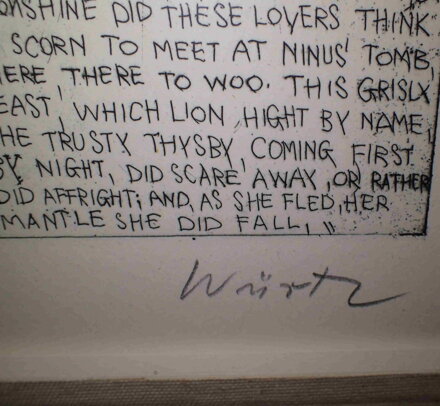 ONSHINE DID THESE LOVERS THINK
SCORN TO MEET AT NINUS' TOMB,
HERE, THERE TO WOO. THIS GRISLY
EAST, WHICH LION HIGHT BY NAME,
HE TRUSTY THYSBY, COMING FIRST
BY NIGHT, DID SCARE AWAY, OR RATHER
DID AFFRIGHT; AND, AS SHE FLED, HER
MANTLE SHE DID FALL, "
Würtz